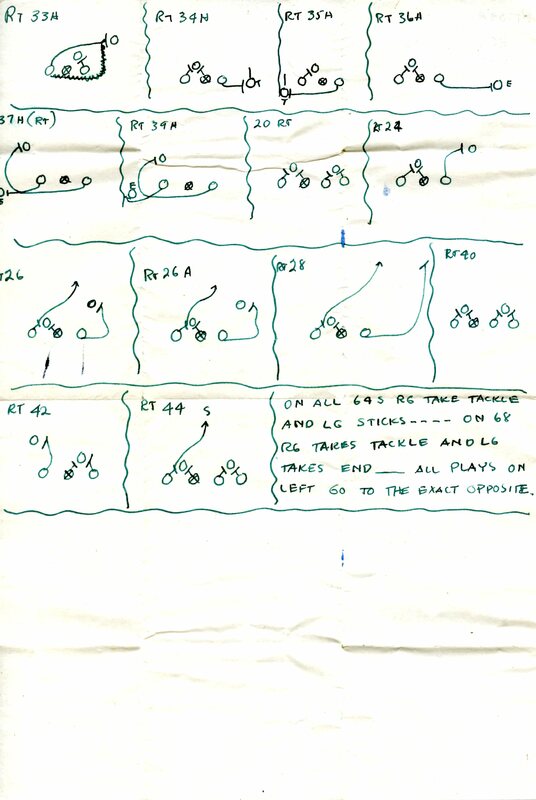 RT 33H
RT 34H
T
RT 35H
T
RT 36H
E
37H (RT)
E
RT 39H
E
20 RT
RT 24
T26
RT 26 A
RT 28
RT 40
RT 42
RT 44
S
ON ALL 64S RG TAKE TACKLE
AND LG STICKS---- ON 68
RG TAKES TACKLE AND LG
TAKES END__ ALL PLAYS ON
LEFT GO TO THE EXACT OPPOSITE.